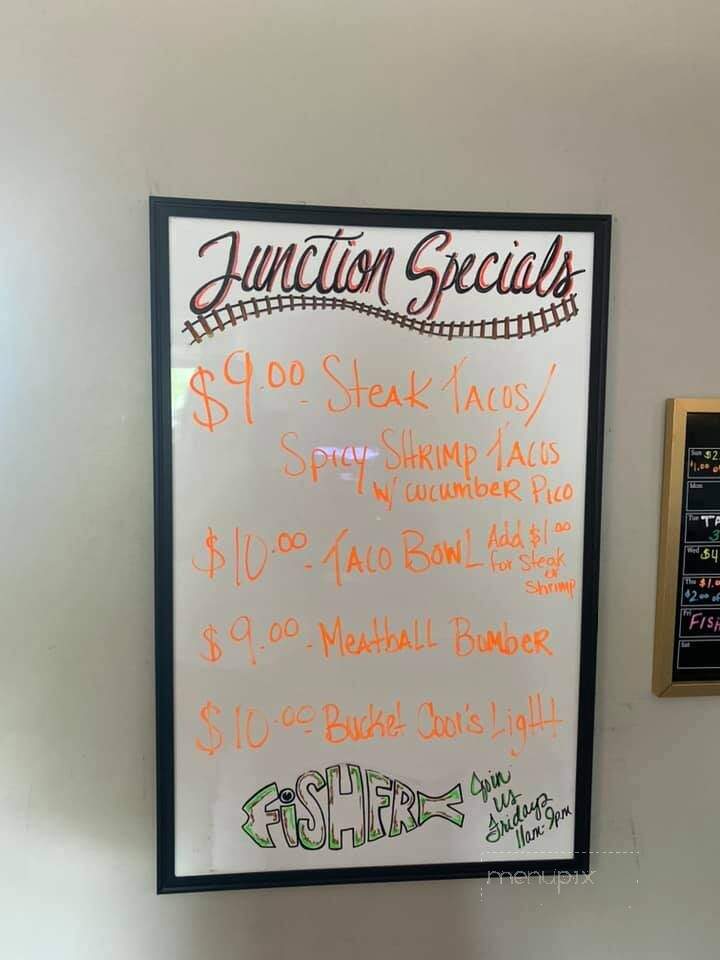 Junction Specials
$9.00 - Steak Tacos/
Spicy Shrimp Tacos
w/ cucumber Pico
$10.00 - Taco Bowl Add $1.00
for Steak
or
Shrimp
$9.00 - Meatball Bumber
$10.00 Bucket Coor's Light
FiSHFRY
Join
us
Fridays
11am-9pm
menupix
Sun $2.
$1.00
Mon
Tue TA
3
Wed $4
Thu $1.0
$2.00 of
Fri
FISH
Sat